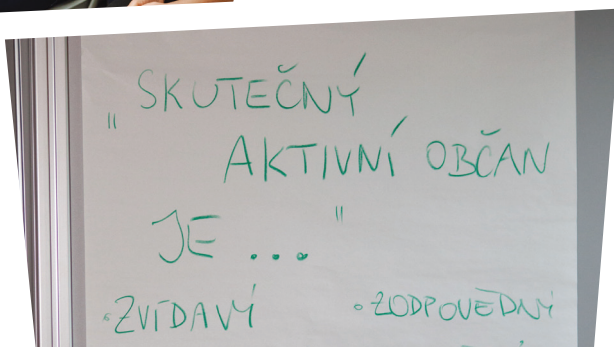 " SKUTEČNÝ
AKTIVNÍ OBČAN
JE ... "
• ZVÍDAVÝ
• ZODPOVĚDNÝ